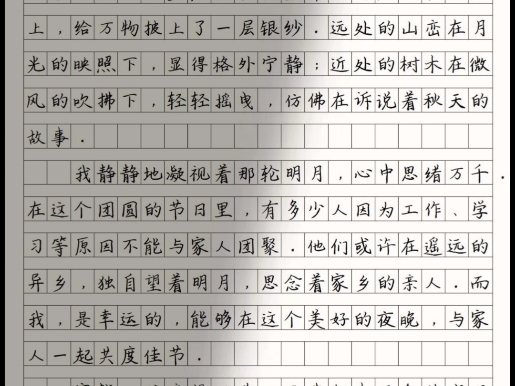 上，给万物披上了一层银纱．远处的山峦在月
光的映照下，显得格外宁静；近处的树木在微
风的吹拂下，轻轻摇曳，仿佛在诉说着秋天的
故事．
我静静地凝视着那轮明月，心中思绪万千．
在这个团圆的节日里，有多少人因为工作、学
习等原因不能与家人团聚．他们或许在遥远的
异乡，独自望着明月，思念着家乡的亲人．而
我，是幸运的，能够在这个美好的夜晚，与家
人一起共度佳节．